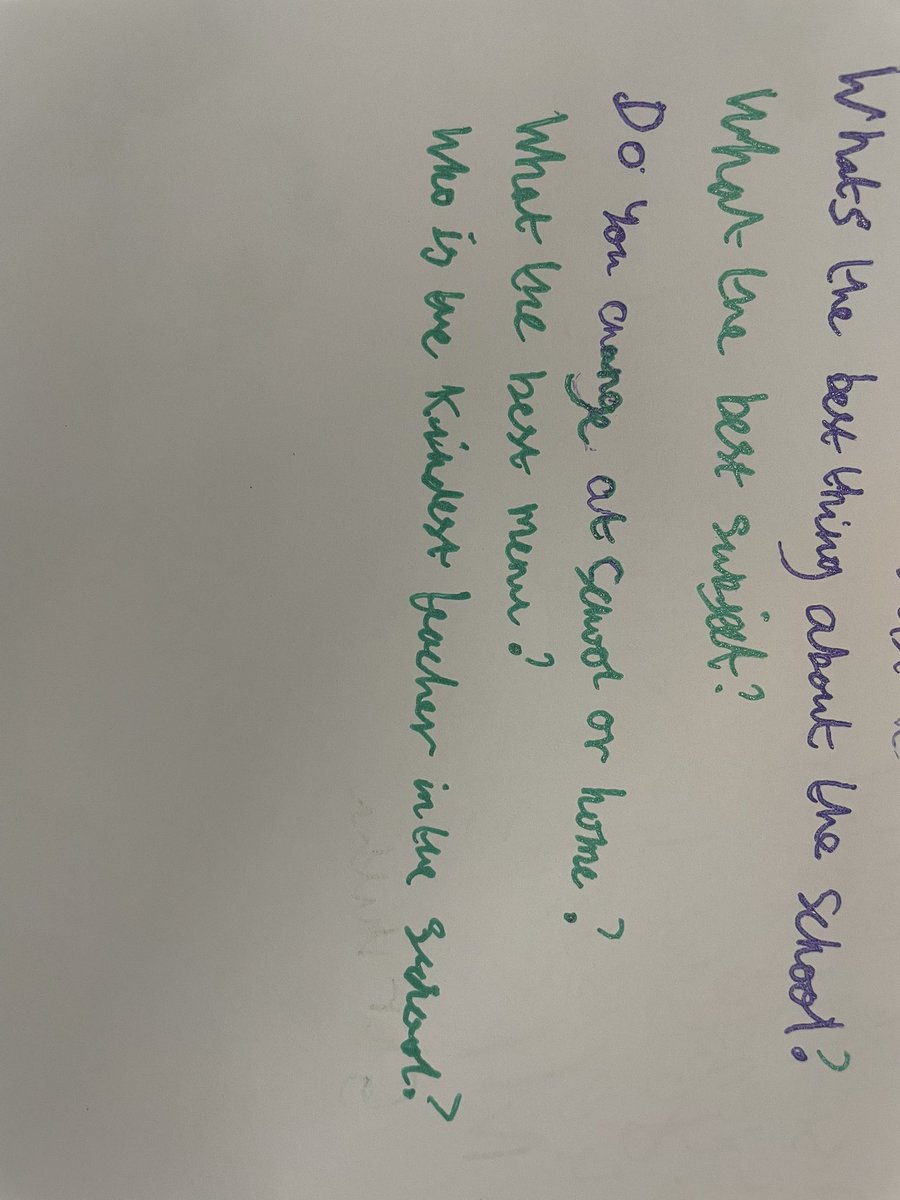 Whats the best thing about the school?
What the best subject?
Do You change at school or home?
What the best menu?
Who is the Kindest teacher in the school?